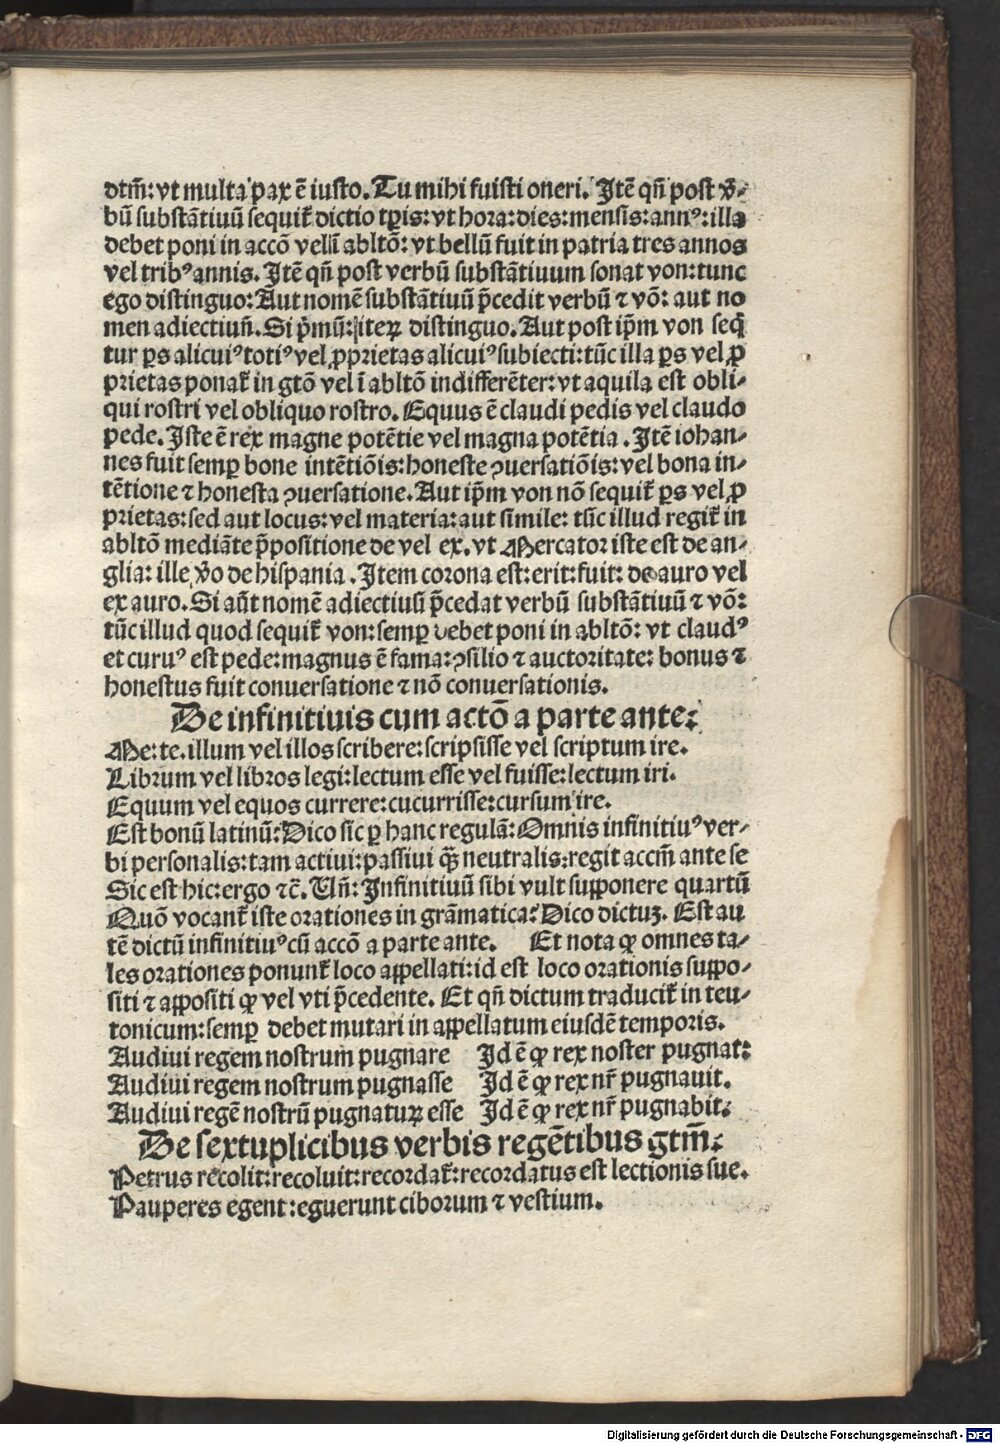 dtm̄: vt multa pax ē iusto. Tu mihi fuisti oneri. Itē qn̄ post v̄-
bū substātiuū sequit᷑ dictio tp̄is: vt hora: dies: mensis: annꝰ: illa
debet poni in accō vel ī abltō: vt bellū fuit in patria tres annos
vel tribꝰ annis. Itē qn̄ post verbū substātiuum sonat von: tunc
ego distinguo: Aut nomē substātiuū p̄cedit verbū ⁊ vō: aut no
men adiectiuū. Si p̄mū: iteꝝ distinguo. Aut post ip̄m von seq̄
tur ꝑs alicuiꝰ totiꝰ vel ꝓprietas alicuiꝰ subiecti: tūc illa ꝑs vel ꝓ
prietas ponat᷑ in gtō vel ī abltō indifferēter: vt aquila est obli-
qui rostri vel obliquo rostro. Equus ē claudi pedis vel claudo
pede. Iste ē rex magne potētie vel magna potētia. Itē iohan-
nes fuit semꝑ bone intētiōis: honeste ꝯuersatiōis: vel bona in-
tētione ⁊ honesta ꝯuersatione. Aut ip̄m von nō sequit᷑ ꝑs vel ꝓ
prietas: sed aut locus: vel materia: aut simile: tūc illud regit᷑ in
abltō mediāte p̄positione de vel ex. vt Mercator iste est de an-
glia: ille v̄o de hispania. Item corona est: erit: fuit: de auro vel
ex auro. Si aūt nomē adiectiuū p̄cedat verbū substātiuū ⁊ vō:
tūc illud quod sequit᷑ von: semꝑ debet poni in abltō: vt claudꝰ
et curuꝰ est pede: magnus ē fama: ꝯsilio ⁊ auctoritate: bonus ⁊
honestus fuit conuersatione ⁊ nō conuersationis.
De infinitiuis cum actō a parte ante:
Me: te. illum vel illos scribere: scripsisse vel scriptum ire.
Librum vel libros legi: lectum esse vel fuisse: lectum iri.
Equum vel equos currere: cucurrisse: cursum ire.
Est bonū latinū: Dico sic ꝑ hanc regulā: Omnis infinitiuꝰ ver-
bi personalis: tam actiui: passiui q̄ꝫ neutralis: regit accm̄ ante se
Sic est hic: ergo ⁊c̄. Un̄: Infinitiuū sibi vult supponere quartū
Quō vocant᷑ iste orationes in grāmatica: Dico dictuꝫ. Est au
tē dictū infinitiuꝰ cū accō a parte ante. Et nota ꝙ omnes ta-
les orationes ponunt᷑ loco appellati: id est loco orationis suppo-
siti ⁊ appositi ꝙ vel vti p̄cedente. Et qn̄ dictum traducit᷑ in teu-
tonicum: semꝑ debet mutari in appellatum eiusdē temporis.
Audiui regem nostrum pugnare Id ē ꝙ rex noster pugnat:
Audiui regem nostrum pugnasse Id ē ꝙ rex nr̄ pugnauit.
Audiui regē nostrū pugnaturꝫ esse Id ē ꝙ rex nr̄ pugnabit:
De sextuplicibus verbis regētibus gtm̄:
Petrus recolit: recoluit: recordat᷑: recordatus est lectionis sue.
Pauperes egent: eguerunt ciborum ⁊ vestium.
Digitalisierung gefördert durch die Deutsche Forschungsgemeinschaft - DFG